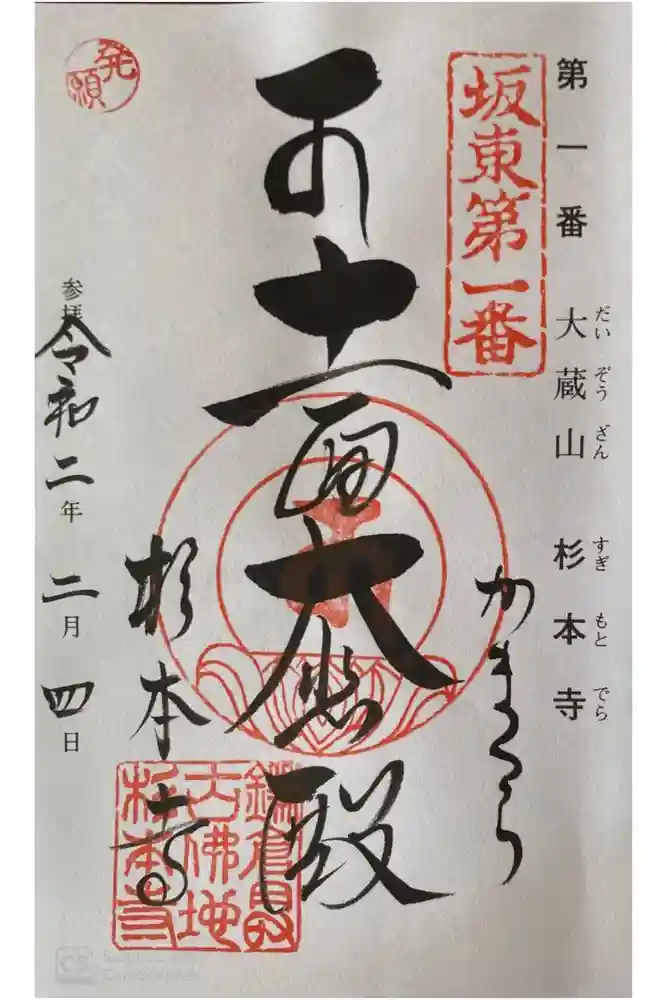 第一番 大蔵山 杉本寺
だいぞうざん すぎもとでら
坂東第一番
かまくら
十一面大悲殿
発願
杉本寺
鎌倉最
古佛地
杉本寺
参拝 令和二年 二月 四日
CS
CamScanner